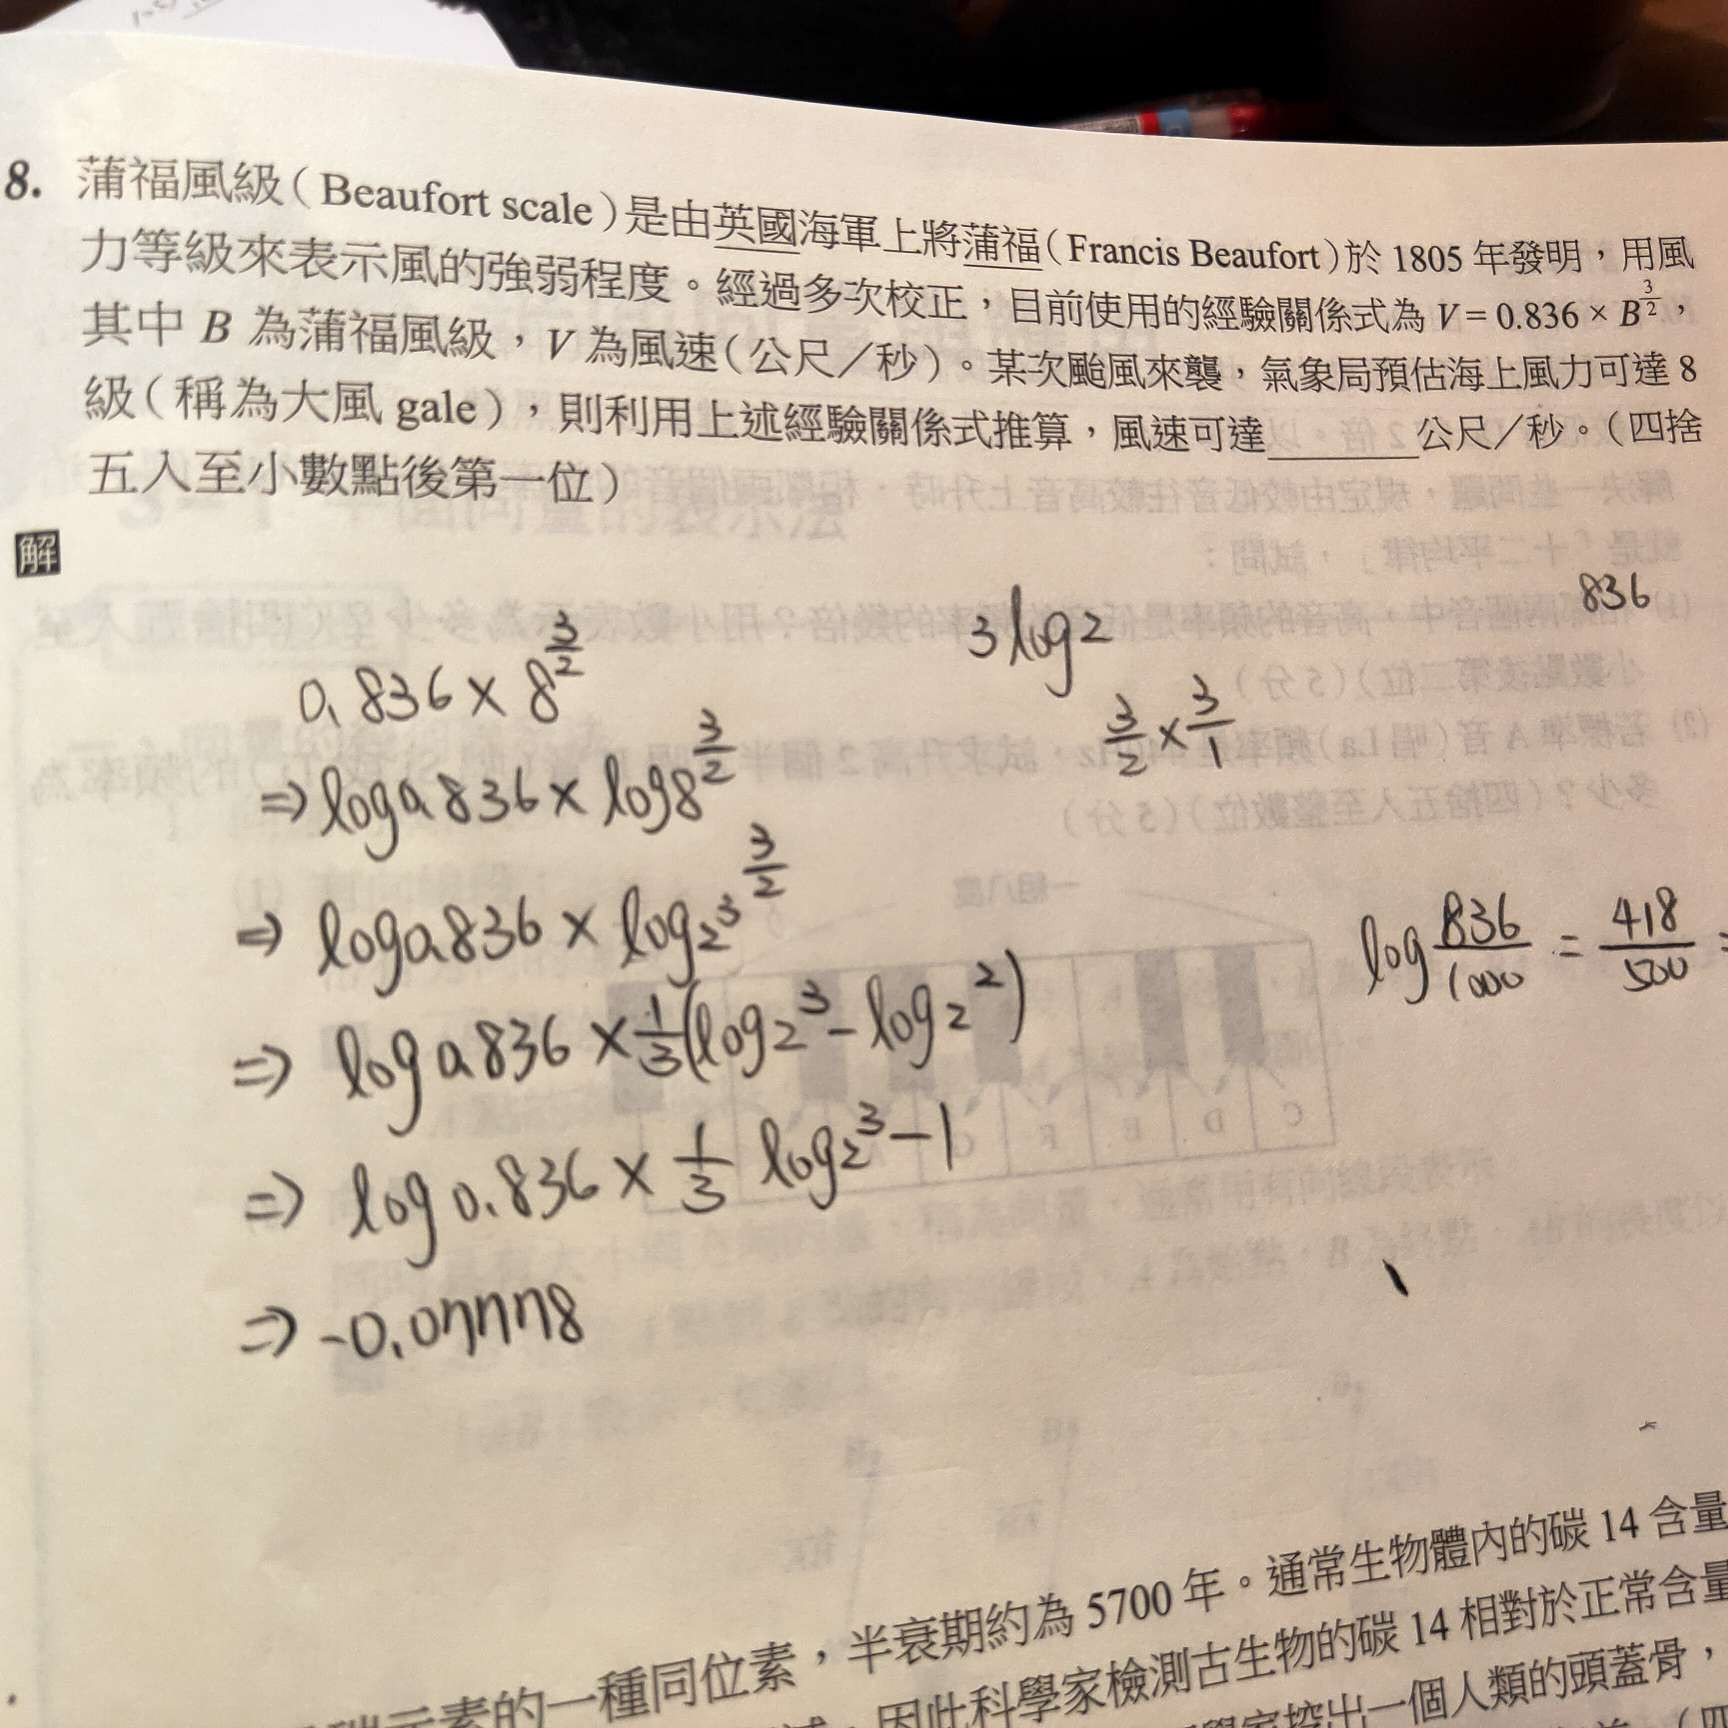 8. 蒲福風級(Beaufort scale)是由英國海軍上將蒲福(Francis Beaufort)於 1805 年發明,用風
力等級來表示風的強弱程度。經過多次校正,目前使用的經驗關係式為 V = 0.836 × B^{3/2},
其中 B 為蒲福風級,V 為風速(公尺/秒)。某次颱風來襲,氣象局預估海上風力可達 8
級(稱為大風 gale),則利用上述經驗關係式推算,風速可達______公尺/秒。(四捨
五入至小數點後第一位)
解
0.836 × 8^{3/2}
⇒ log0.836 × log8^{3/2}
⇒ log0.836 × log2^{3^{3/2}}
⇒ log0.836 × 1/3(log2^3 - log2^2)
⇒ log0.836 × 1/3 log2^3 - 1
3log2
3/2 × 3/1
836
log 836/1000 = 418/500 =
元素的一種同位素,半衰期約為 5700 年。通常生物體內的碳 14 含量
因此科學家檢測古生物的碳 14 相對於正常含量
學家挖出一個人類的頭蓋骨,